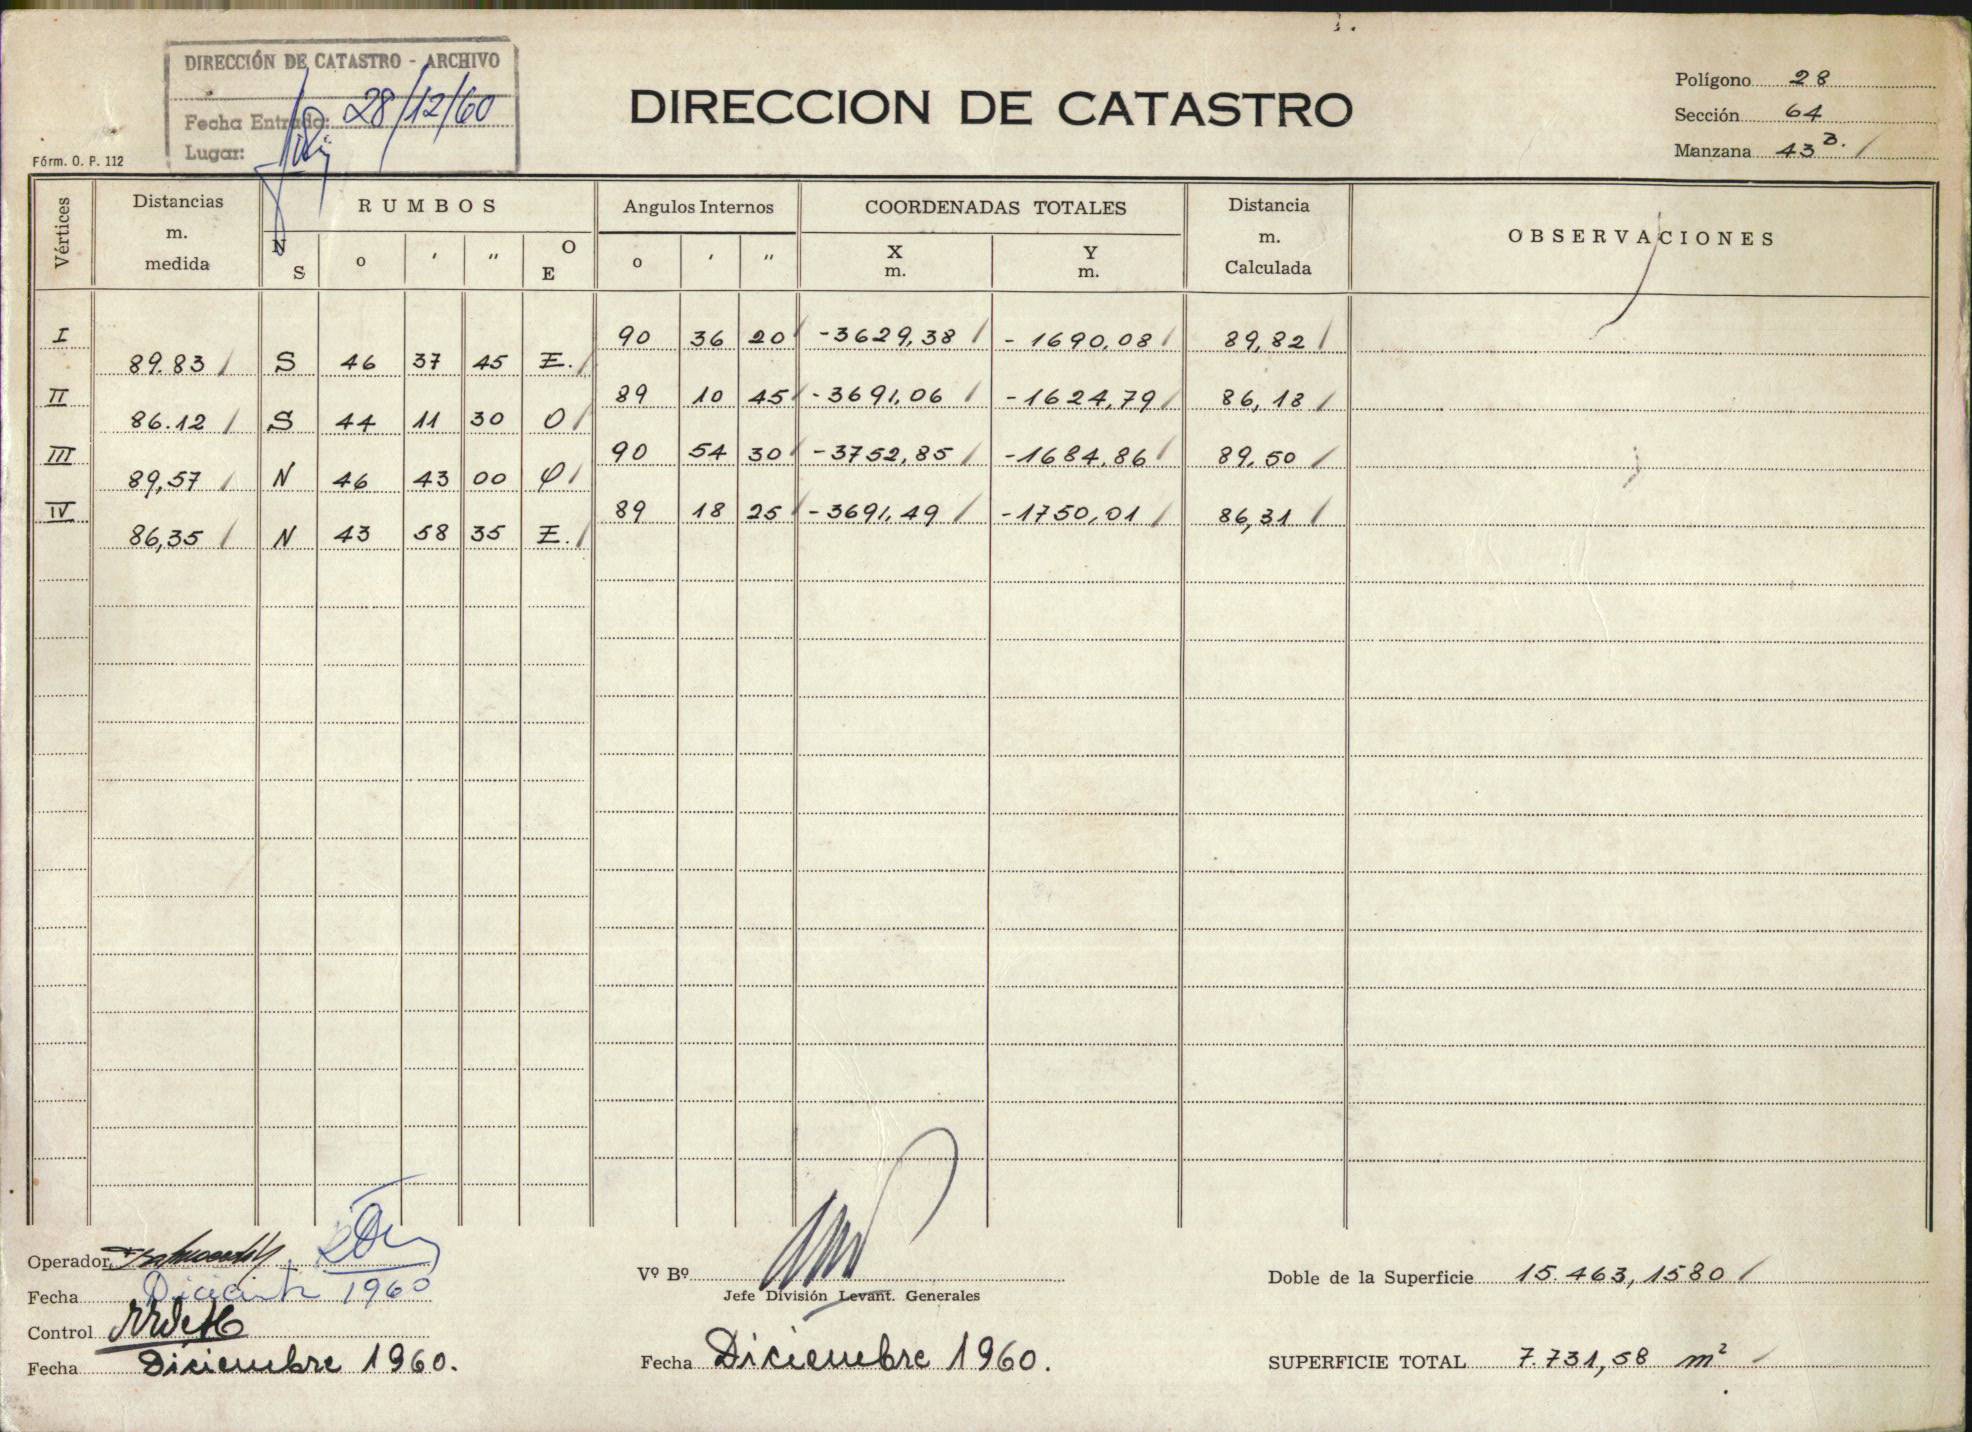 DIRECCIÓN DE CATASTRO - ARCHIVO
Fecha Entrada: 28/12/60
Lugar:
DIRECCION DE CATASTRO
Polígono 28
Sección 64
Manzana 43 B.
Fórm. O. P. 112
Vértices Distancias m. medida RUMBOS Angulos Internos COORDENADAS TOTALES Distancia m. Calculada OBSERVACIONES
N S o ′ ″ O E o ′ ″ X m. Y m.
I 90 36 20 -3629,38 -1690,08 89,82
89.83 S 46 37 45 E.
II 89 10 45 -3691,06 -1624,79 86,18
86.12 S 44 11 30 O
III 90 54 30 -3752,85 -1684,86 89.50
89,57 N 46 43 00 O
IV 89 18 25 -3691,49 -1750,01 86,31
86,35 N 43 58 35 E.
Operador
Fecha Diciembre 1960
Control
Fecha Diciembre 1960.
Vº Bº
Jefe División Levant. Generales
Fecha Diciembre 1960.
Doble de la Superficie 15.463,1580
SUPERFICIE TOTAL 7.731,58 m²